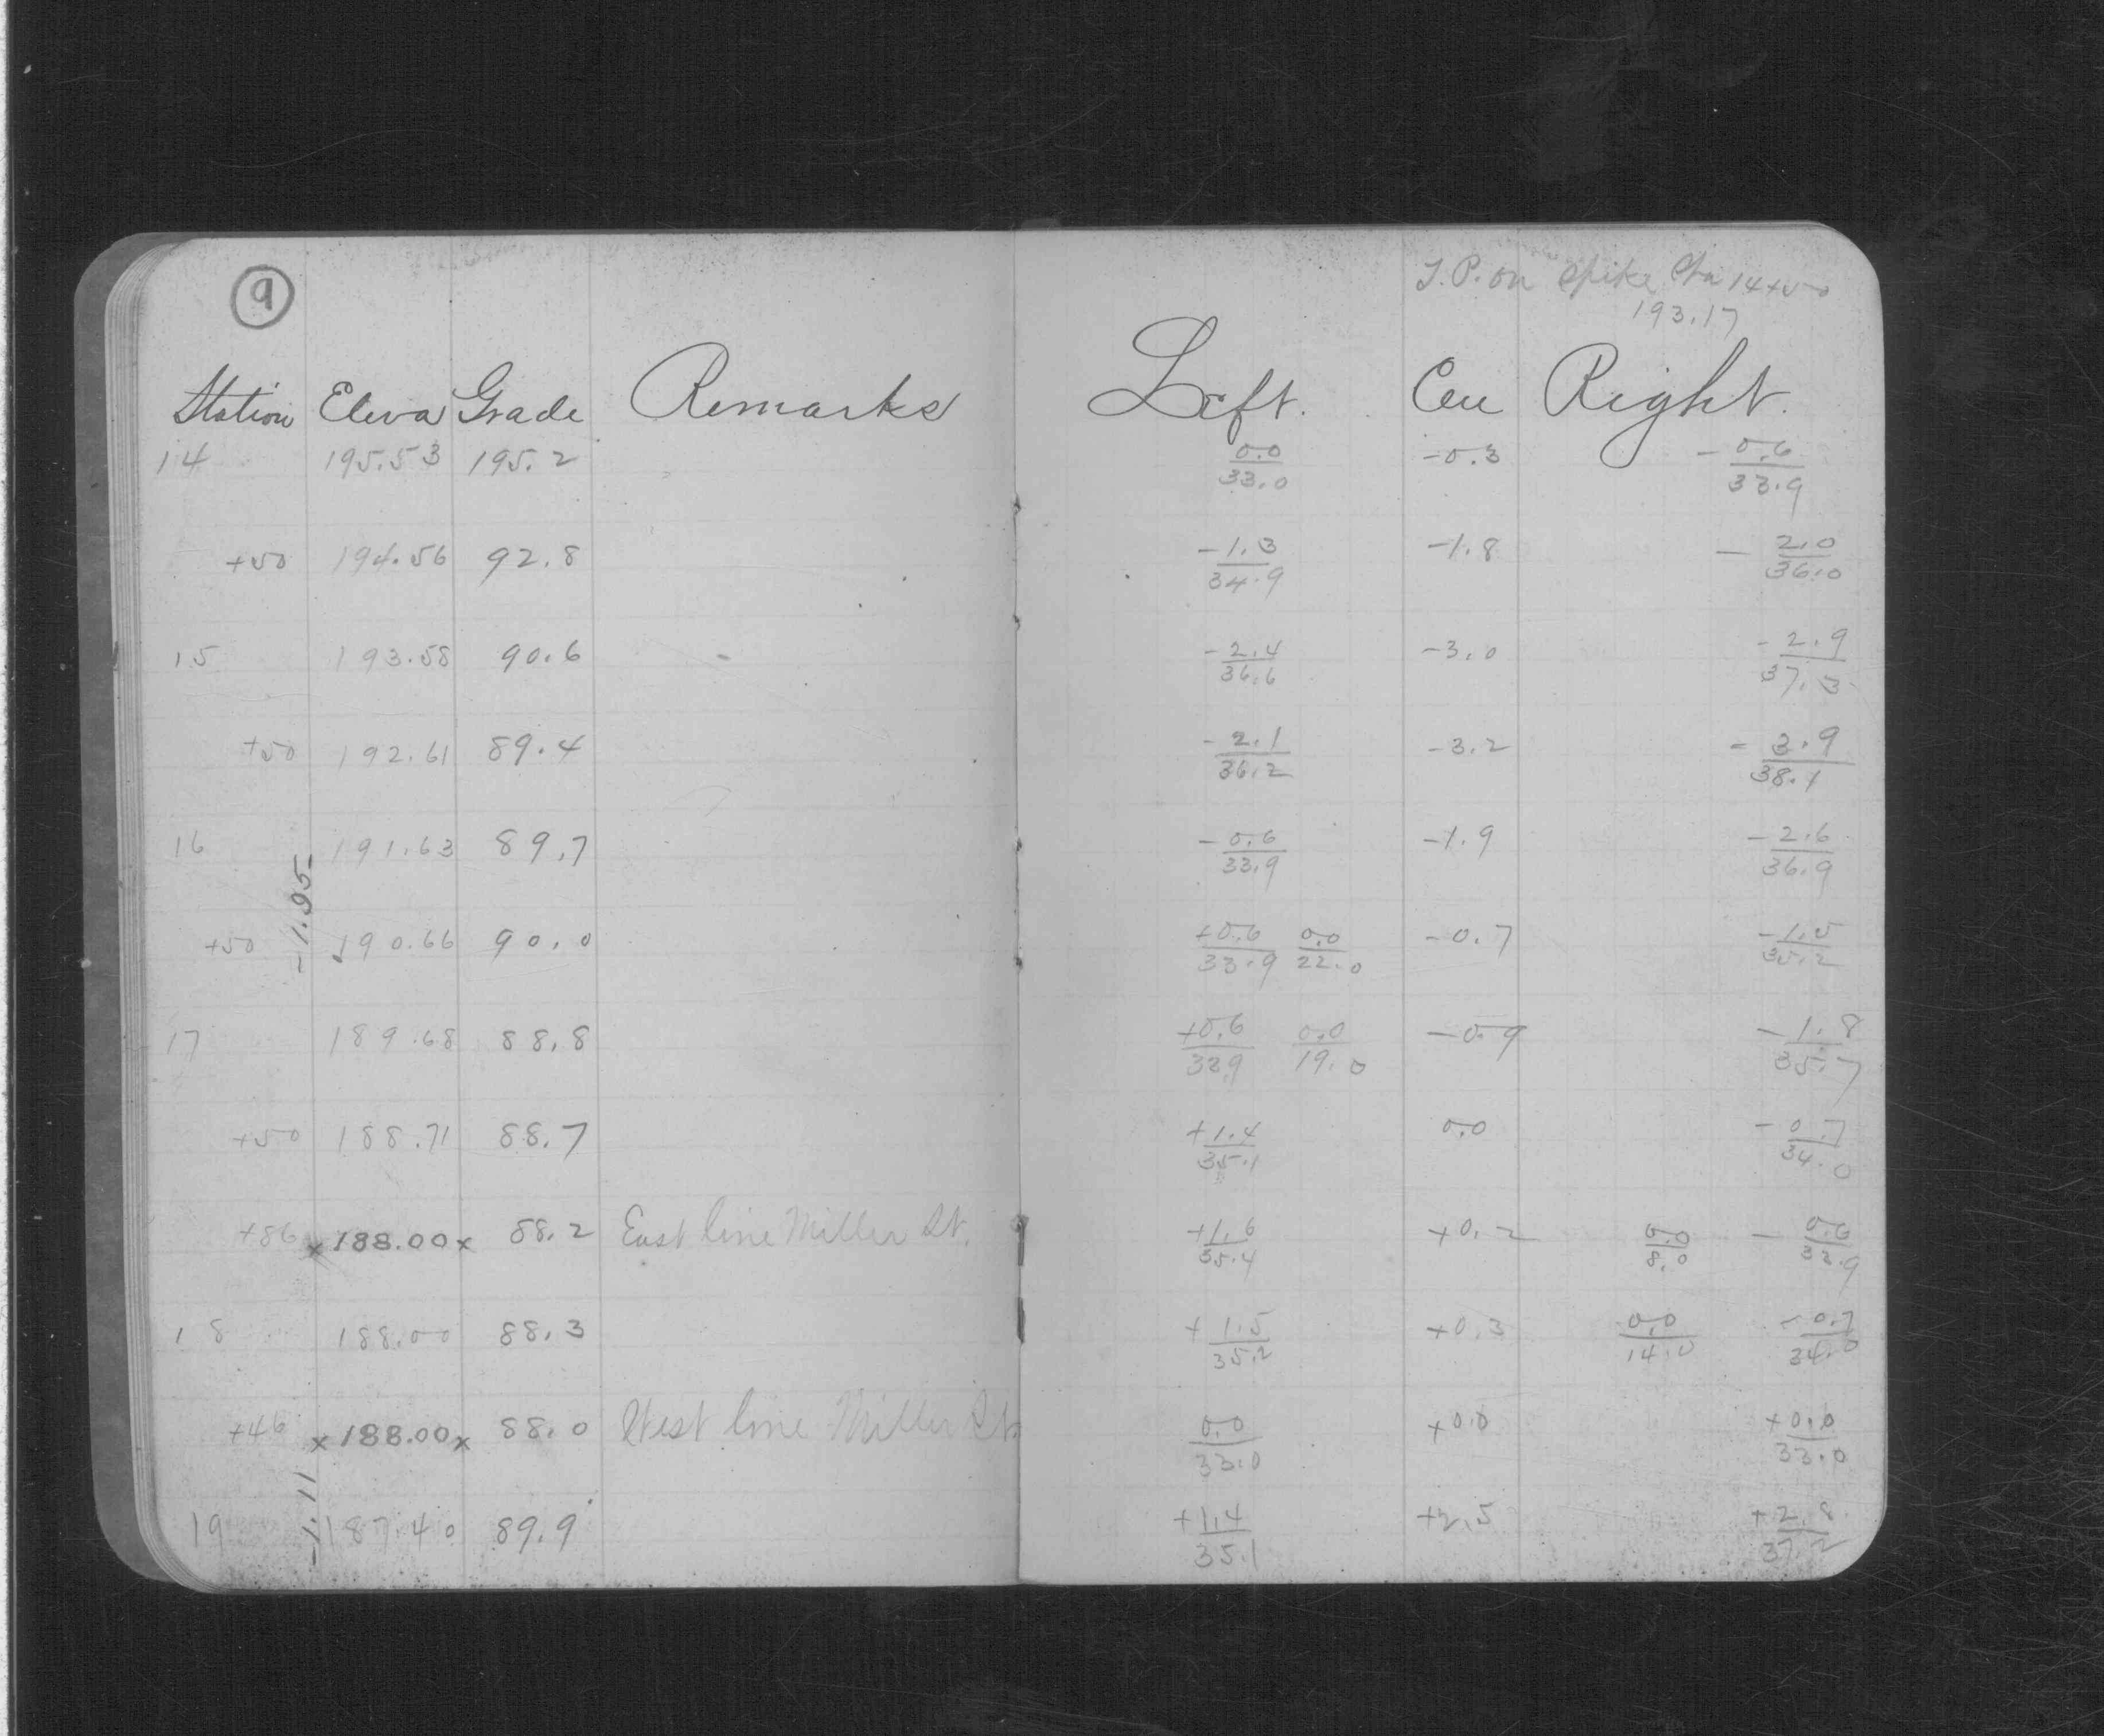 9
T.P. on Spike Sta 14+50
193.17
Station Eleva Grade Remarks Left. Cen Right.
14 195.53 195.2 0.0/33.0 -0.3 -0.6/33.9
+50 194.56 92.8 -1.3/34.9 -1.8 -2.0/36.0
15 193.58 90.6 -2.4/36.6 -3.0 -2.9/37.3
+50 192.61 89.4 -2.1/36.2 -3.2 -3.9/38.1
16 191.63 89.7 -0.6/33.9 -1.9 -2.6/36.9
-1.95
+50 190.66 90.0 +0.6/33.9 0.0/22.0 -0.7 -1.5/35.2
17 189.68 88.8 +0.6/33.9 0.0/19.0 -0.9 -1.8/35.7
+50 188.71 88.7 +1.4/35.1 0.0 -0.7/34.0
+86 x188.00x 88.2 East line Miller St. +1.6/35.4 +0.2 0.0/8.0 -0.6/33.9
18 188.00 88.3 +1.5/35.2 +0.3 0.0/14.0 -0.7/34.0
+46 x188.00x 88.0 West line Miller St. 0.0/33.0 +0.0 +0.0/33.0
-1.11
19 187.40 89.9 +1.4/35.1 +2.5 +2.8/37.2